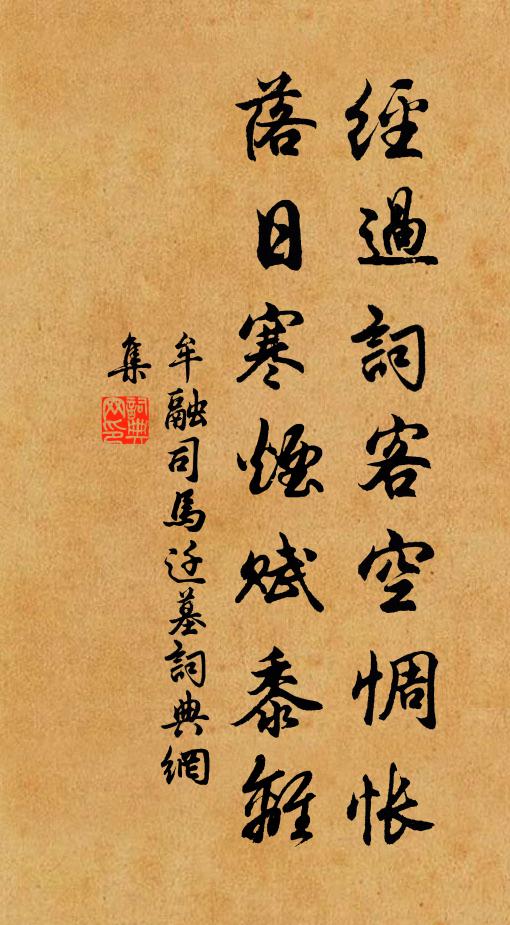 經過詞客空惆悵
落日寒煙賦黍離
牟融司馬迁墓詞典網
集
詞典网印